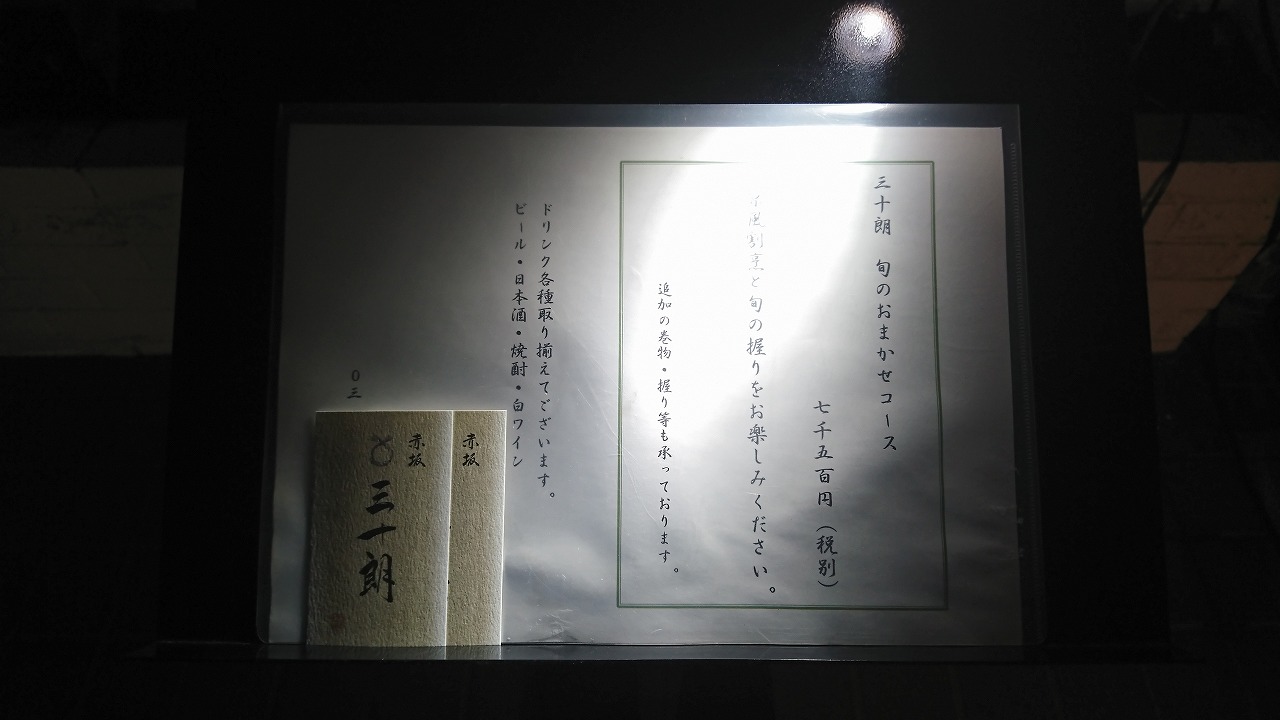 三十朗 旬のおまかせコース
七千五百円（税別）
風割烹と旬の握りをお楽しみください。
追加の巻物・握り等も承っております。
ドリンク各種取り揃えてございます。
ビール・日本酒・焼酎・白ワイン
〇三
赤坂
赤坂
三十朗